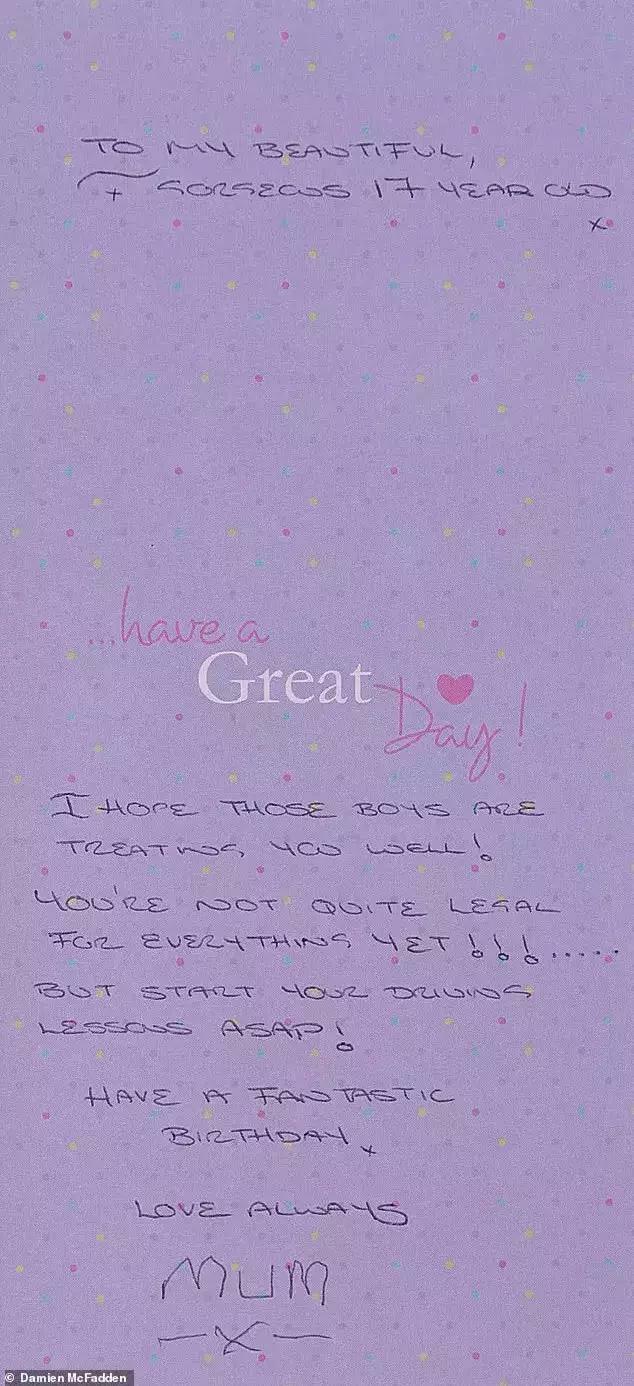 TO MY BEAUTIFUL,
+ GORGEOUS 17 YEAR OLD
x
...have a
Great
Day!
I HOPE THOSE BOYS ARE
TREATING YOU WELL!
YOU'RE NOT QUITE LEGAL
FOR EVERYTHING YET!!!.....
BUT START YOUR DRIVING
LESSONS ASAP!
HAVE A FANTASTIC
BIRTHDAY x
LOVE ALWAYS
MUM
—X—
© Damien McFadden